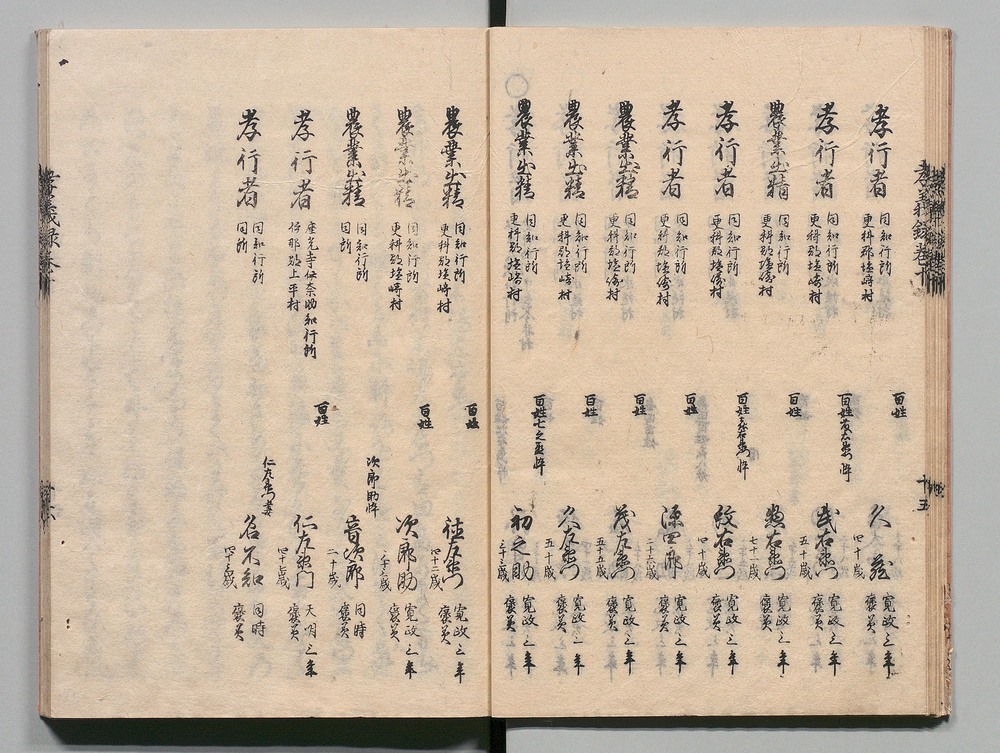 孝義録巻十
十五
孝行者 同知行所 更科郡塩崎村 百姓 久蔵 四十歳 寛政三年 褒美
孝行者 同知行所 更科郡塩崎村 百姓 右衛門忰 武右衛門 五十歳 寛政三年 褒美
農業出精 同知行所 更科郡塩崎村 百姓 惣右衛門 七十一歳 寛政三年 褒美
孝行者 同知行所 更科郡塩崎村 百姓 右衛門忰 紋右衛門 四十歳 寛政三年 褒美
孝行者 同知行所 更科郡塩崎村 百姓 源四郎 寛政三年 褒美
農業出精 同知行所 更科郡塩崎村 百姓 茂左衛門 五十五歳 寛政三年 褒美
農業出精 同知行所 更科郡塩崎村 百姓 久左衛門 五十歳 寛政三年 褒美
農業出精 同知行所 更科郡塩崎村 百姓七之丞忰 初之助 三十三歳 寛政三年 褒美
農業出精 同知行所 更科郡塩崎村 百姓 徳左衛門 四十二歳 寛政三年 褒美
農業出精 同知行所 更科郡塩崎村 百姓 次郎助 六十六歳 寛政三年 褒美
農業出精 同知行所 同所 次郎助忰 音次郎 二十歳 同時 褒美
孝行者 座光寺伊奈助知行所 伊那郡上平村 百姓 仁左衛門 四十七歳 天明三年 褒美
孝行者 同知行所 同所 仁左衛門妻 名不知 四十三歳 同時 褒美